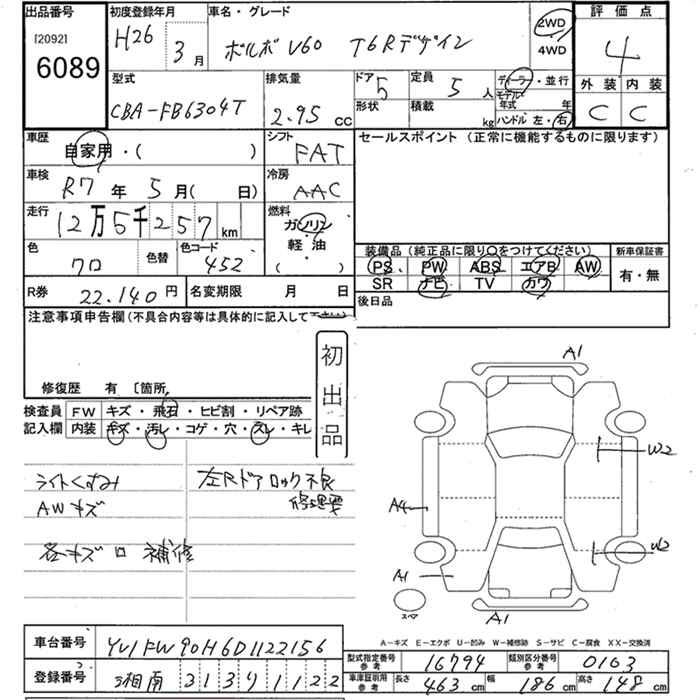 出品番号 初度登録年月日 車名・グレード 2WD 評価点
[2092] 6089 H26 3月 ボルボ V60 T6 Rデザイン 4WD 4
型式 排気量 ドア 定員 ディーラー・並行 外装 内装
CBA-FB6304T 2.95 cc 5 5 人 モデル年式 年 C C
形状 積載 kg ハンドル 左・右
車歴 自家用・( ) シフト FAT セールスポイント (正常に機能するものに限ります)
車検 R7 年 5 月( 日) 冷房 AAC
走行 12万5千257 km 燃料 ガソリン
軽油
( )
色 クロ 色替 色コード 452
装備品(純正品に限り○をつけてください) 新車保証書
PS PW ABS エアB AW 有・無
SR ナビ TV カワ
R券 22.140 円 名変期限 月 日 後日品
注意事項申告欄(不具合内容等は具体的に記入して
初出品
修復歴 有 〔箇所,
検査員 FW キズ・飛石・ヒビ割・リペア跡
記入欄 内装 キズ・汚レ・コゲ・穴・スレ・キレ
ライトくすみ 左Rドアロック不良
AWキズ 修理要
各キズ ロ 補修
A1
W2
A4
W2
A1
スペア A1
A-キズ E-エクボ U-凹み W-補修跡 S-サビ C-腐食 XX-交換済
車台番号 YV1FW90H6D1122156
型式指定番号 参考 16794 類別区分番号 参考 0163
登録番号 湘南 313 1122
車庫証明用 参考 長さ 463 cm 幅 186 cm 高さ 148 cm